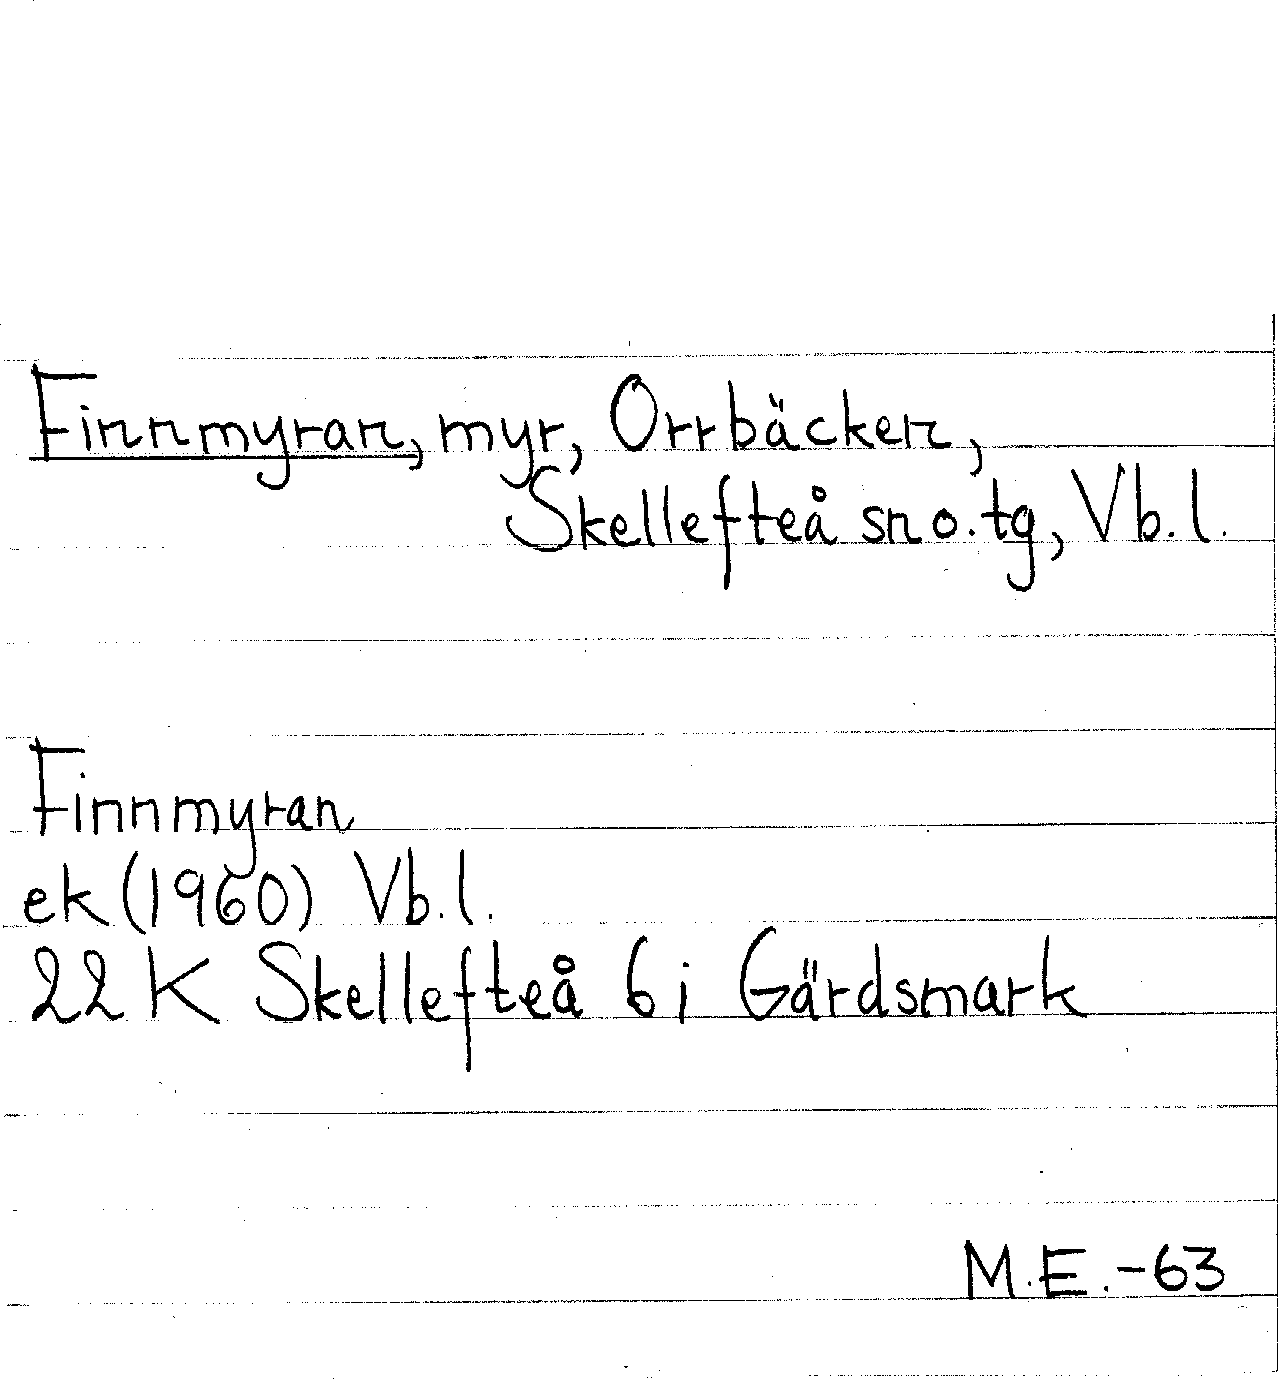 Finnmyran, myr, Orrbäcken,
Skellefteå sn o. tg, Vb. l.
Finnmyran
ek (1960) Vb. l.
22 K Skellefteå 6 i Gärdsmark
M.E. -63